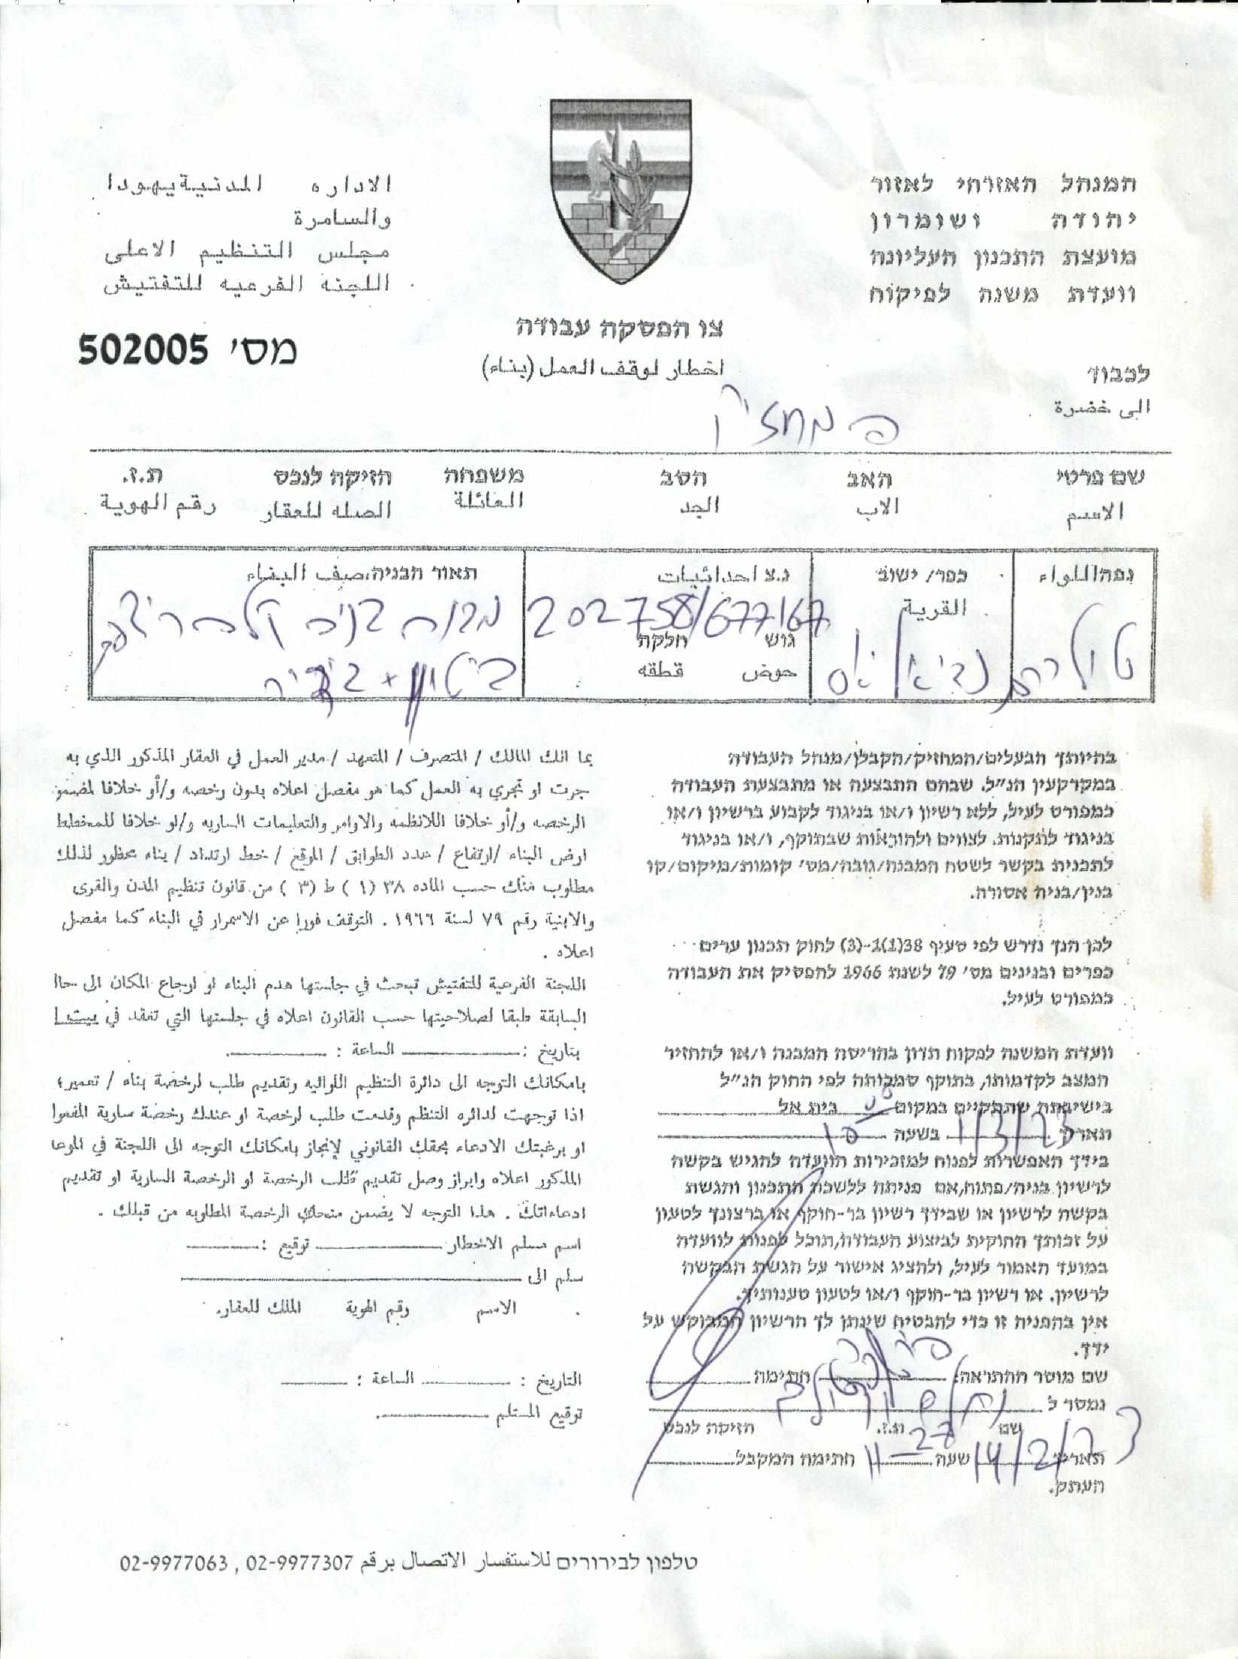 המנהל האזרחי לאזור
יהודה ושומרון
מועצת התכנון העליונה
וועדת משנה לפיקוח
الاداره المدنية يهودا
والسامرة
مجلس التنظيم الاعلى
اللجنه الفرعيه للتفتيش
צו הפסקת עבודה
اخطار لوقف العمل (بناء)
מס' 502005
לכבוד
الى حضرة
המחזיק
שם פרטי האב הסב משפחה חזיקה לנכס ת.ז.
الاسم الاب الجد العائلة الصله للعقار رقم الهوية
נפה/اللواء כפר/ ישוב נ.צ احداثيات תאור הבניה،صيف البناء
القرية
202758/677167
גוש חלקה
حوض قطعه
בהיותך הבעלים/המחזיק/הקבלן/מנהל העבודה
במקרקעין הנ"ל. שבהם התבצעה או מתבצעת העבודה
כמפורט לעיל, ללא רשיון ו/או בניגוד לקבוע ברשיון ו/או
בניגוד לתקנות. לצווים ולהוראות שבתוקף, ו/או בניגוד
לתכנית בקשר לשטח המבנה/גובה/מס' קומות/מיקום/קו
בנין/בניה אסורה.
לכן הנך נדרש לפי סעיף 38(1)1-(3) לחוק תכנון ערים
כפרים ובנינים מס' 79 לשנת 1966 להפסיק את העבודה
כמפורט לעיל.
וועדת המשנה לפקוח תדון בהריסת המבנה ו/או להחזיר
המצב לקדמותו, בתוקף סמכותה לפי החוק הנ"ל
בישיבתה שתתקיים במקום בית אל
תאריך 1/3/23 בשעה 10
בידך האפשרות לפנות למזכירות הוועדה להגיש בקשה
לרשיון בניה/פתוח,אם פניתה ללשכת התכנון והגשת
בקשה לרשיון או שבידך רשיון בר-תוקף או ברצונך לטעון
על זכותך החוקית לביצוע העבודה,תוכל לפנות לוועדה
במועד האמור לעיל, ולהציג אישור על הגשת הבקשה
לרשיון. או רשיון בר-תוקף ו/או לטעון טענותיך.
אין בהפניה זו כדי להבטיח שינתן לך הרשיון המבוקש על
ידך.
שם מוסר ההתראה: חתימה:
נמסר ל
שם ת.ז. חזיקה לנכס
תאריך 14/2/23 שעה 11 חתימה המקבל
העתק.
بما انك المالك / المتصرف / المتعهد / مدير العمل في العقار المذكور الذي به
جرت او تجري به العمل كما هو مفصل اعلاه بدون رخصه و/أو خلافا لمضمو
الرخصه و/أو خلافا للانظمه والاوامر والتعليمات الساريه و/لو خلافا للمخطط
ارض البناء /ارتفاع / عدد الطوابق / الموقع / خط ارتداد / بناء محظور لذلك
مطلوب منك حسب الماده ٣٨ (١) ط (٣) من قانون تنظيم المدن والقرى
والابنية رقم ٧٩ لسنة ١٩٦٦ . التوقف فورا عن الاسمرار في البناء كما مفصل
اعلاه .
اللجنه الفرعية للتفتيش تبحث في جلستها هدم البناء او ارجاع المكان الى حالا
السابقة طبقا لصلاحيتها حسب القانون اعلاه في جلستها التي تعقد في بيت ا
بتاريخ : الساعة :
بامكانك التوجه الى دائرة التنظيم اللوائيه وتقديم طلب لرخصة بناء / تعمير؛
اذا توجهت لدائره التنظم وقدمت طلب لرخصة او عندك رخصة سارية المفعوا
او برغبتك الادعاء بحقك القانوني لإنجاز بامكانك التوجه الى اللجنة في الموعا
المذكور اعلاه وابراز وصل تقديم طلب الرخصة او الرخصة السارية او تقديم
ادعاءاتك . هذا التوجه لا يضمن منحك الرخصة المطلوبه من قبلك .
اسم مسلم الاخطار توقيع :
سلم الى
الاسم رقم الهوية المالك للعقار.
التاريخ : الساعة :
توقيع المستلم
טלפון לבירורים للاستفسار الاتصال برقم 02-9977307 , 02-9977063